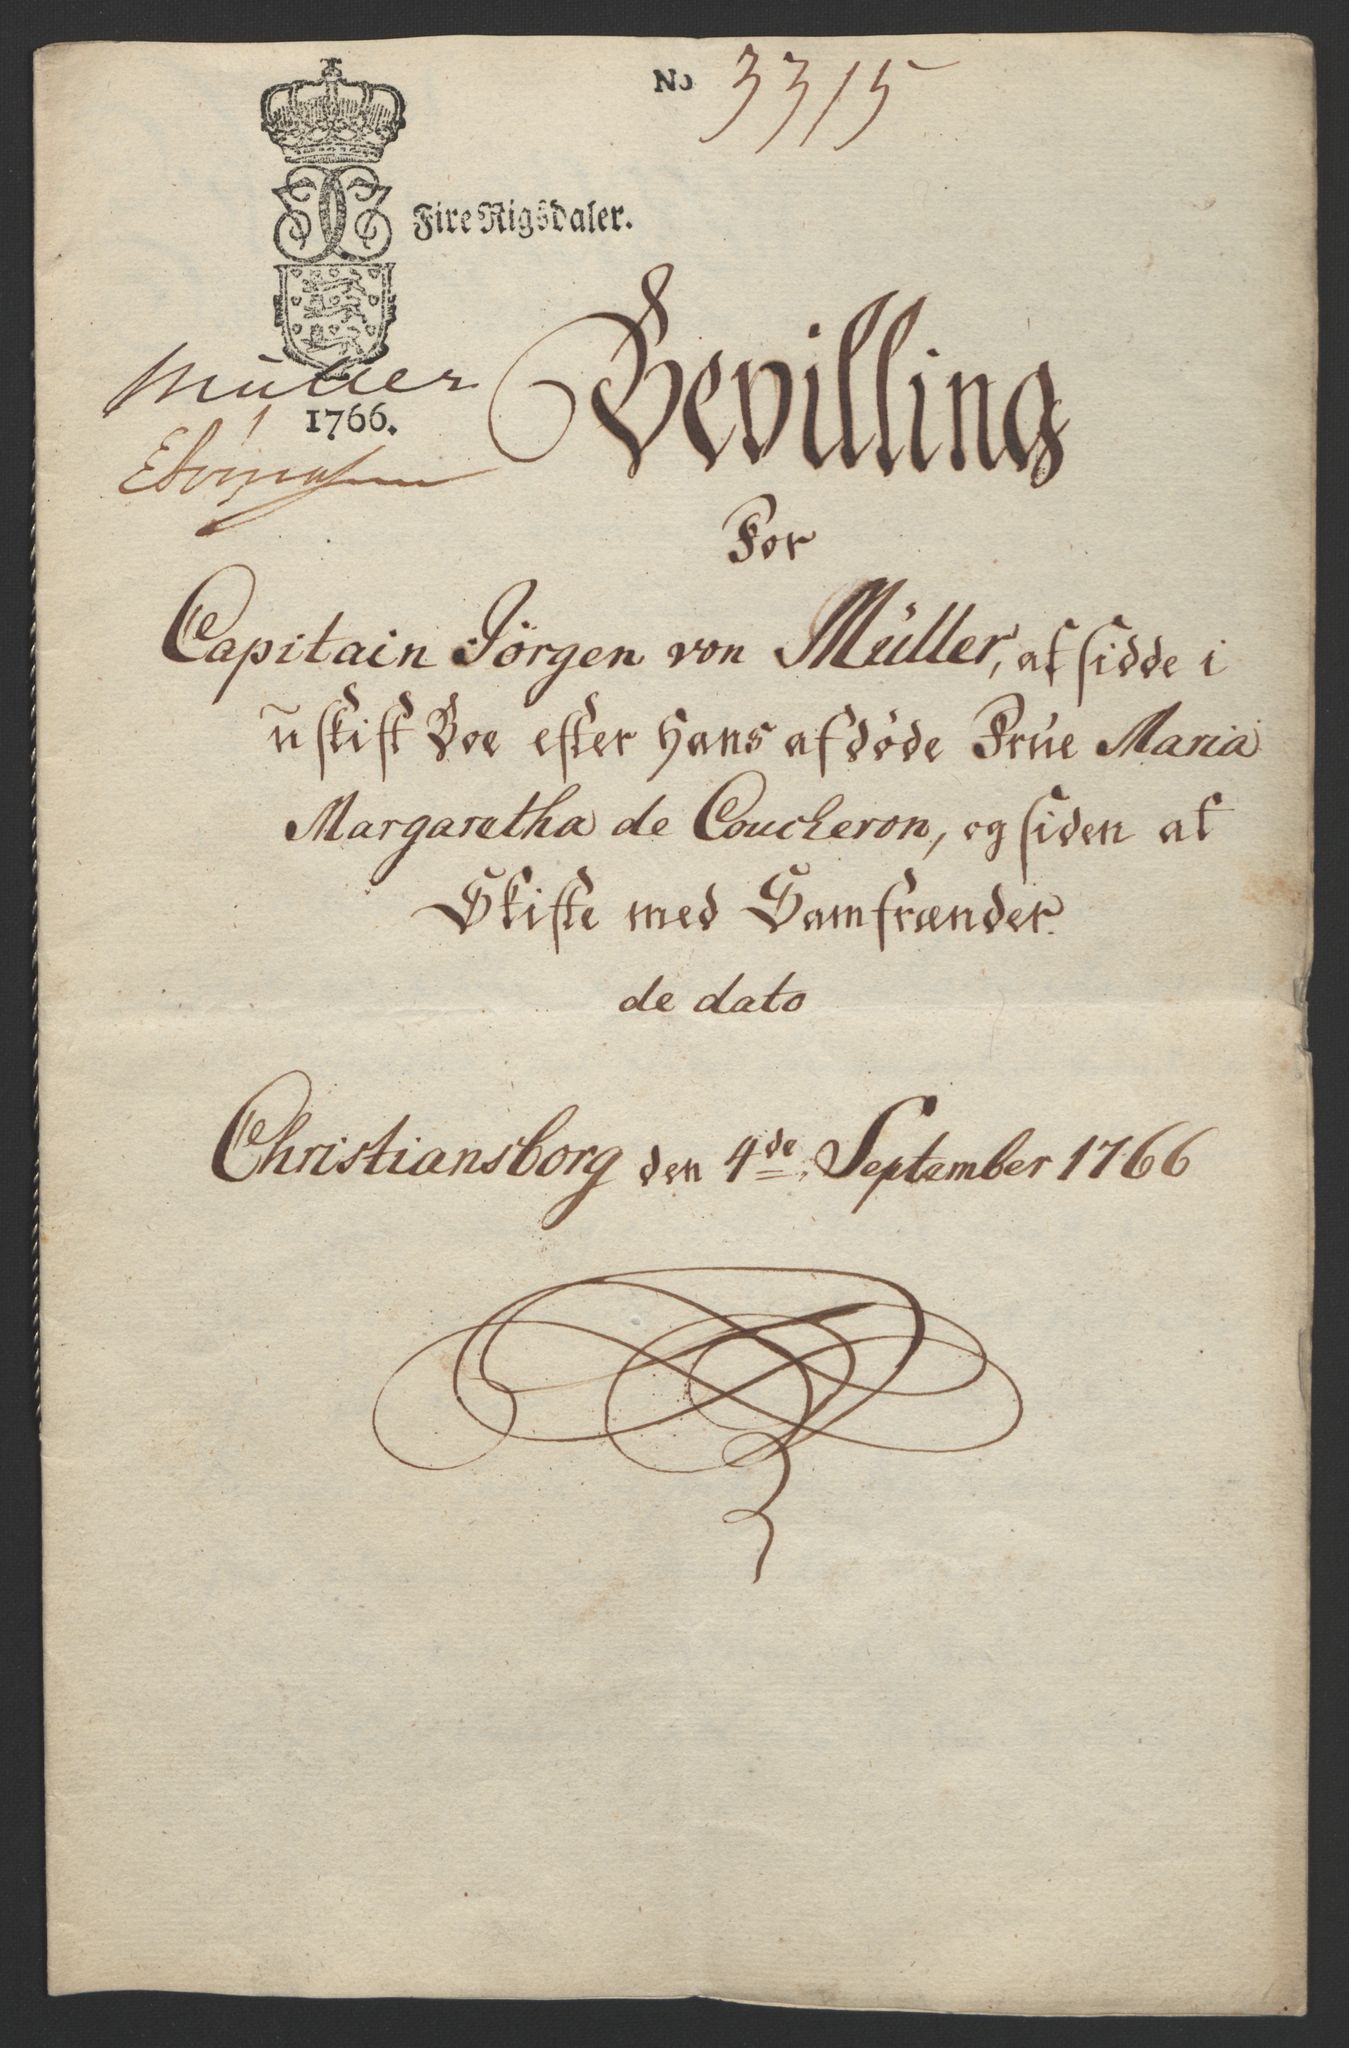 No 3315
Fire Rigsdaler.
Müller
1766.
Bevilling
For
Capitain Jörgen von Müller, at sidde i
uskift Boe efter Hans afdöde Frue Maria
Margaretha de Coucheron, og siden at
Skifte med Samfrænder.
de dato
Christiansborg den 4de September 1766